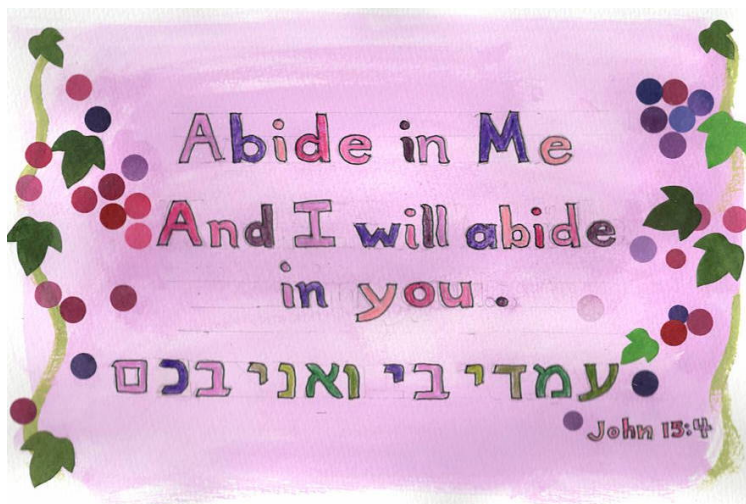 Abide in Me
And I will abide
in you.
עמדי בי ואני בכם
John 15:4